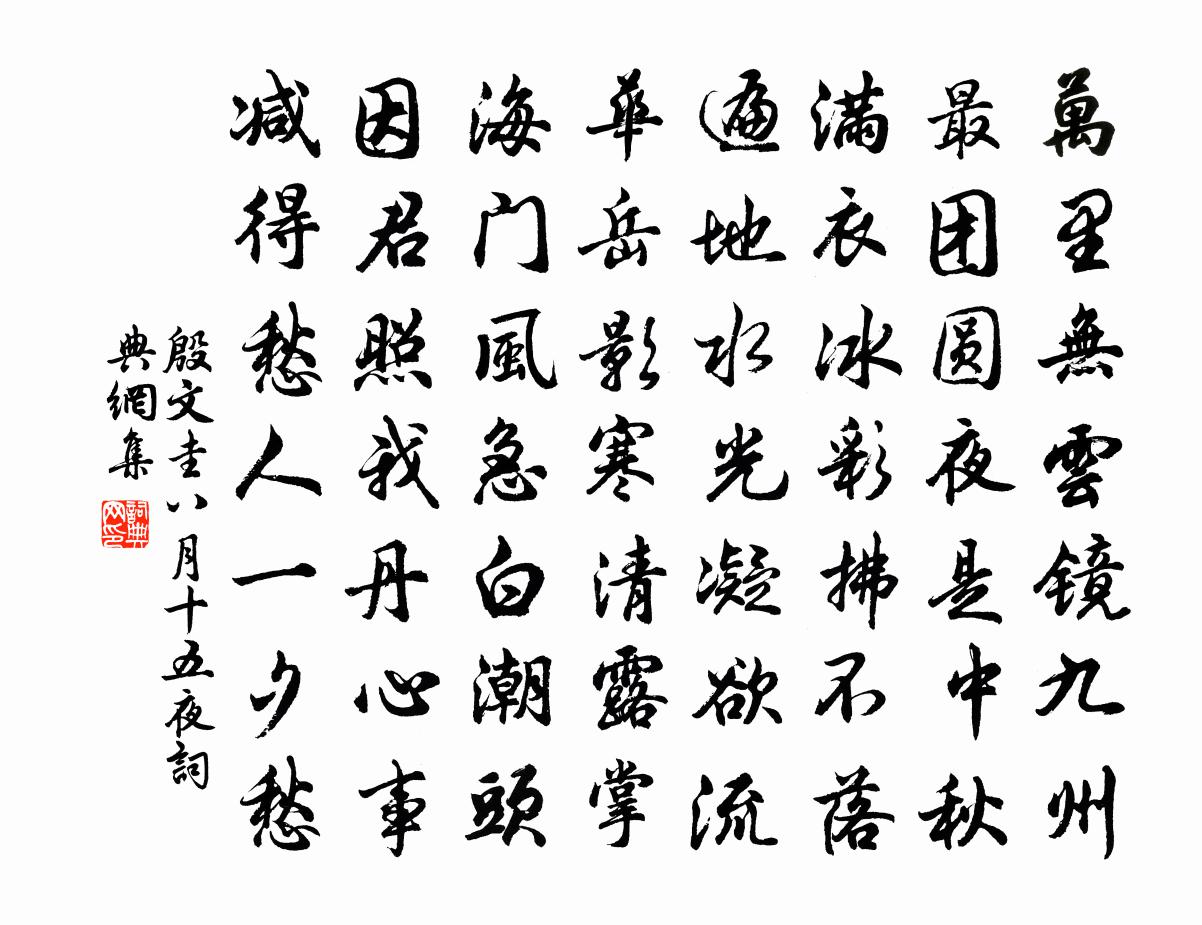 萬里無雲鏡九州
最团圆夜是中秋
滿衣冰彩拂不落
遍地水光凝欲流
華岳影寒清露掌
海门風急白潮頭
因君照我丹心事
减得愁人一夕愁
殷文圭八月十五夜詞
典網集
詞典
网印